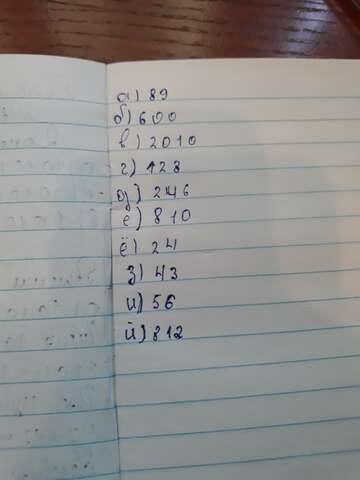 а) 89
б) 600
в) 2010
г) 128
д) 246
е) 810
ё) 24
з) 43
и) 56
й) 812